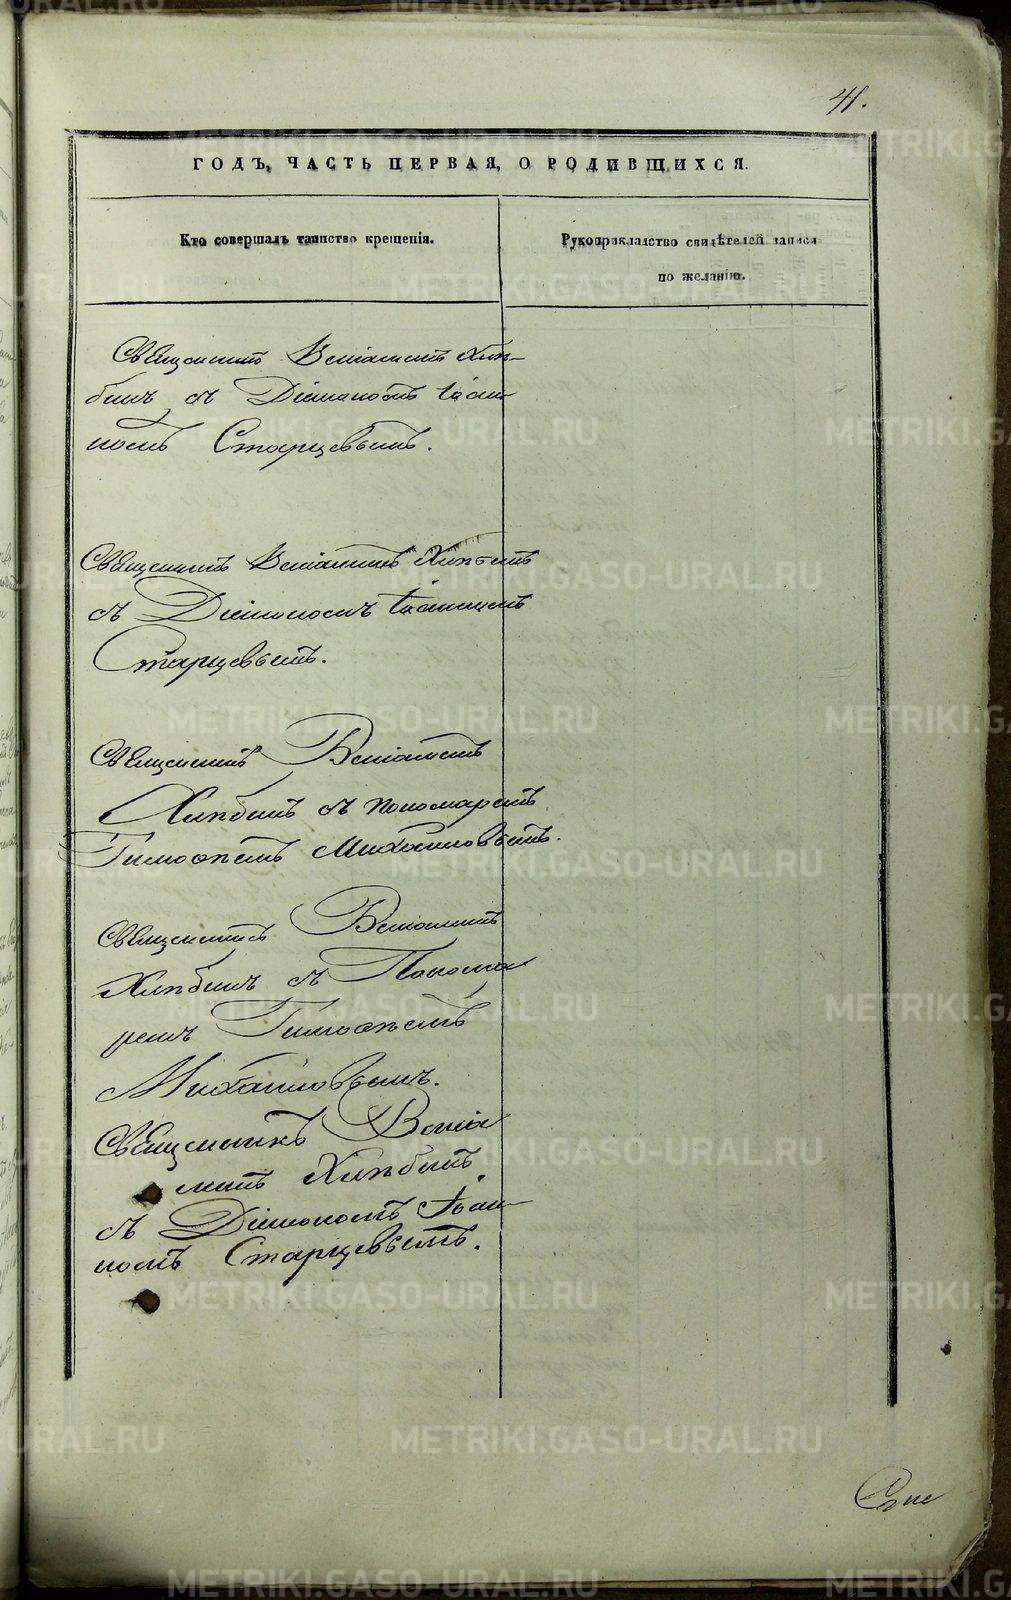 41.
ГОДЪ, ЧАСТЬ ПЕРВАЯ, О РОДИВШИХСЯ.
Кто совершалъ таинство крещенія.
Рукоприкладство свидѣтелей записи
по желанію.
Священникъ Веніаминъ Хлѣ-
бинъ съ Діакономъ Іоан-
номъ Старцевымъ.
Священникъ Веніаминъ Хлѣбинъ
съ Діакономъ Іоанномъ
Старцевымъ.
Священникъ Веніаминъ
Хлѣбинъ съ пономаремъ
Тимоѳеемъ Михайловымъ.
Священникъ Веніаминъ
Хлѣбинъ съ Понома
ремъ Тимоѳеемъ
Михайловымъ.
Священникъ Веніа
минъ Хлѣбинъ
съ Діакономъ Іоан-
номъ Старцевымъ.
METRIKI.GASO-URAL.RU